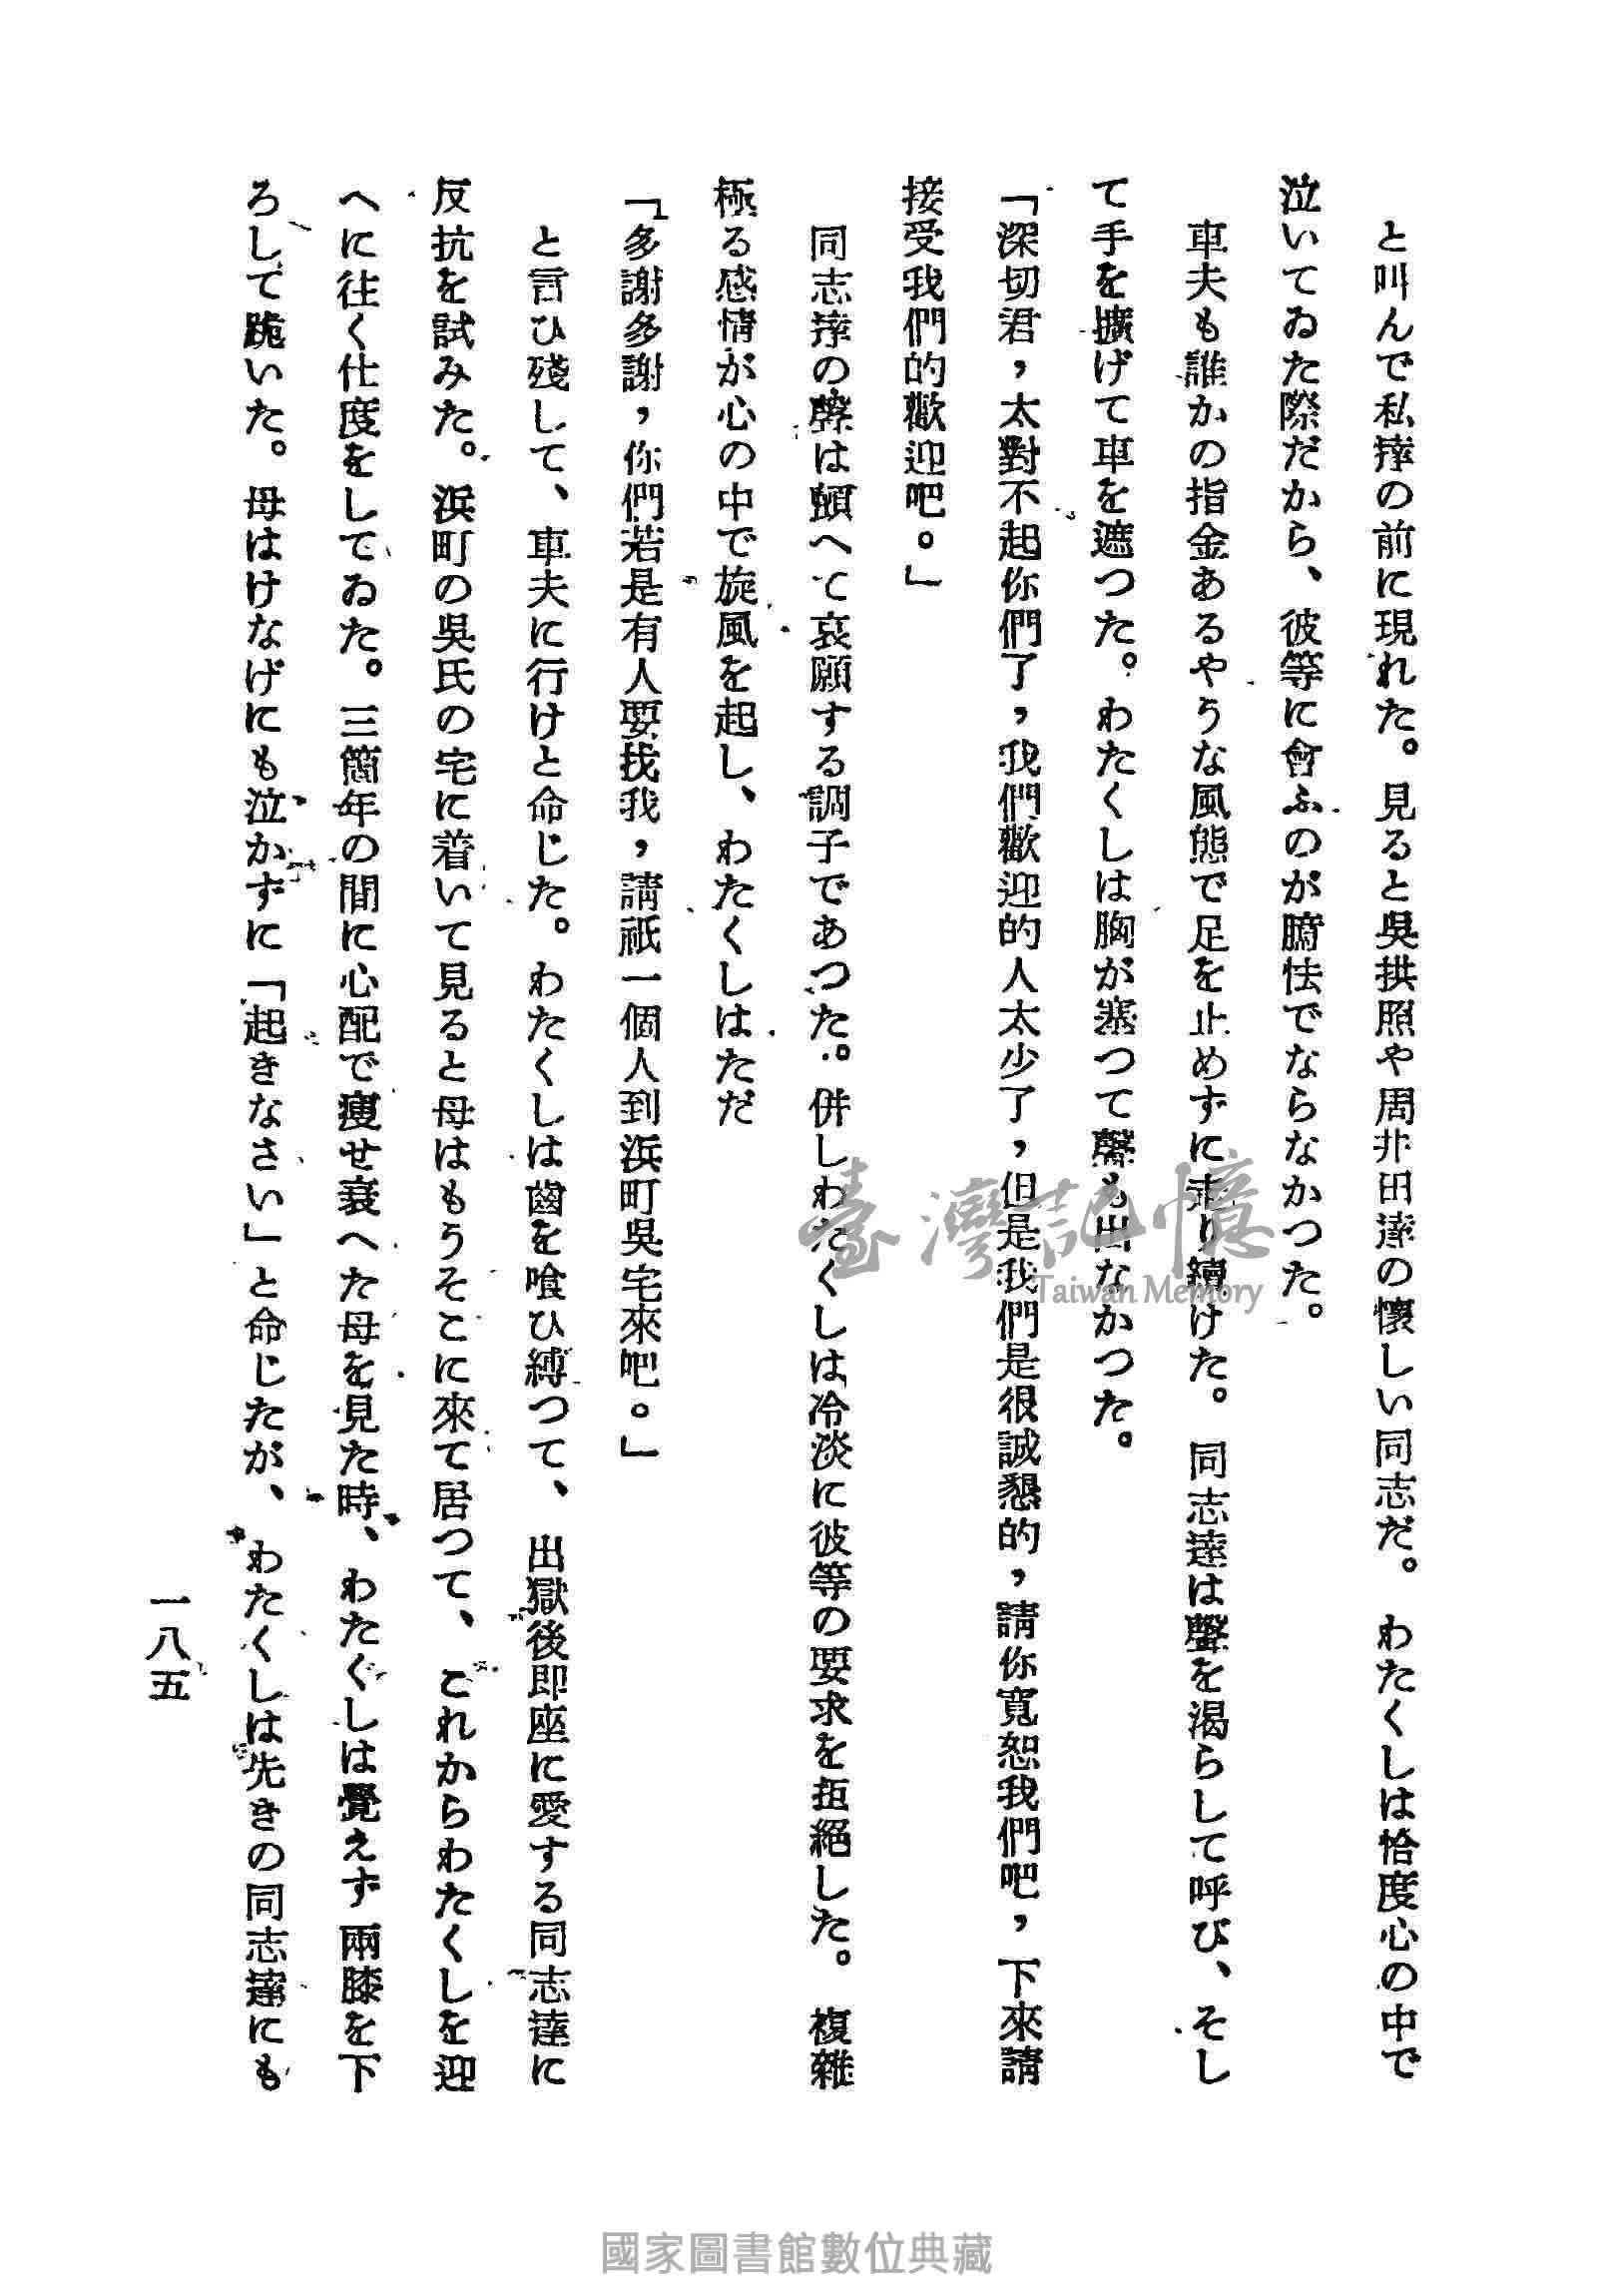 と叫んで私達の前に現れた。見ると吳拱照や周井田達の懷しい同志だ。わたくしは恰度心の中で
泣いてゐた際だから、彼等に會ふのが臆怯でならなかつた。
車夫も誰かの指金あるやうな風態で足を止めずに走り續けた。同志達は聲を渴らして呼び、そし
て手を擴げて車を遮つた。わたくしは胸が塞つて聲も出なかつた。
「深切君，太對不起你們了，我們歡迎的人太少了，但是我們是很誠懇的，請你寬恕我們吧，下來請
接受我們的歡迎吧。」
同志達の聲は顫へて哀願する調子であつた。併しわたくしは冷淡に彼等の要求を拒絕した。複雜
極る感情が心の中で旋風を起し、わたくしはただ
「多謝多謝，你們若是有人要找我，請祇一個人到浜町吳宅來吧。」
と言ひ殘して、車夫に行けと命じた。わたくしは齒を喰ひ縛つて、出獄後即座に愛する同志達に
反抗を試みた。浜町の吳氏の宅に着いて見ると母はもうそこに來て居つて、これからわたくしを迎
へに往く仕度をしてゐた。三箇年の間に心配で瘦せ衰へた母を見た時、わたくしは覺えず兩膝を下
ろして跪いた。母はけなげにも泣かずに「起きなさい」と命じたが、わたくしは先きの同志達にも
一八五
臺灣記憶
Taiwan Memory
國家圖書館數位典藏